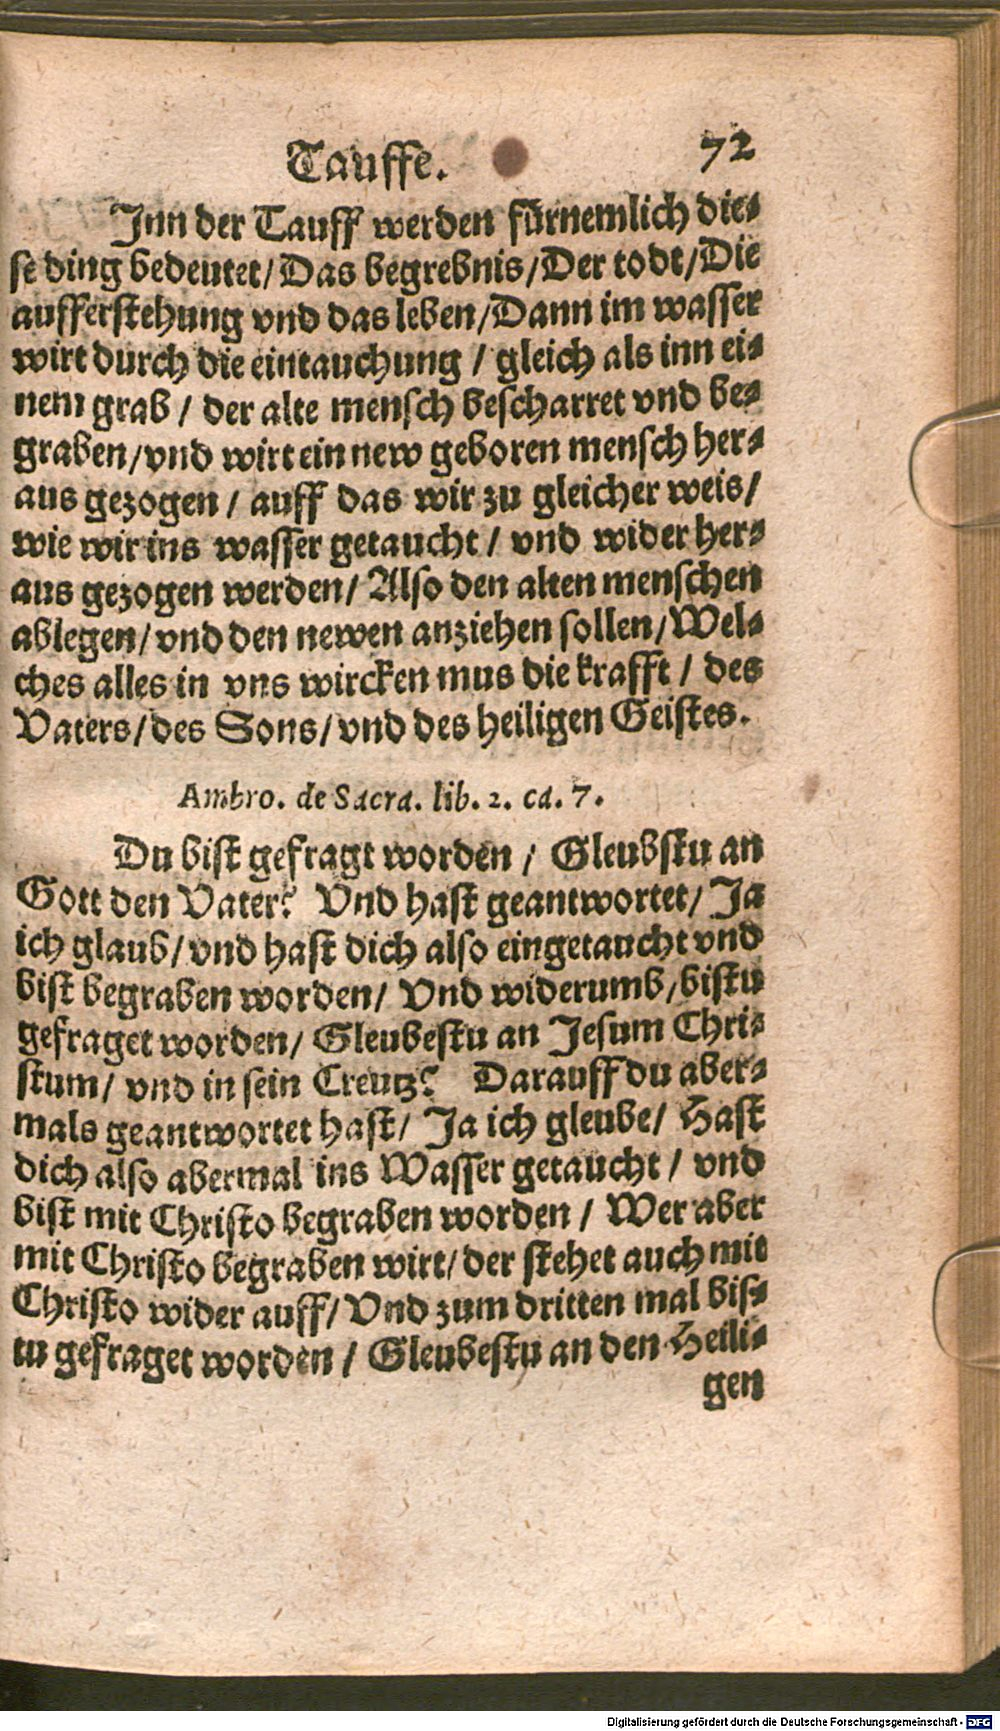 Tauffe. 72
Inn der Tauff werden fürnemlich die-
se ding bedeutet/Das begrebnis/Der todt/Die
aufferstehung vnd das leben/Dann im wasser
wirt durch die eintauchung / gleich als inn ei-
nem grab / der alte mensch bescharret vnd be-
graben/vnd wirt ein new geboren mensch her-
aus gezogen / auff das wir zu gleicher weis/
wie wir ins wasser getaucht / vnd wider her-
aus gezogen werden/ Also den alten menschen
ablegen/vnd den newen anziehen sollen/Wel-
ches alles in vns wircken mus die krafft / des
Vaters/des Sons/vnd des heiligen Geistes.
Ambro. de Sacra. lib. 2. ca. 7.
Du bist gefragt worden / Gleubstu an
Gott den Vater? Vnd hast geantwortet/ Ja
ich glaub/vnd hast dich also eingetaucht vnd
bist begraben worden/ Vnd widerumb/bistu
gefraget worden/ Gleubestu an Jesum Chri-
stum/ vnd in sein Creutz? Darauff du aber-
mals geantwortet hast/ Ja ich gleube/ Hast
dich also abermal ins Wasser getaucht / vnd
bist mit Christo begraben worden / Wer aber
mit Christo begraben wirt/der stehet auch mit
Christo wider auff/Vnd zum dritten mal bis-
tu gefraget worden / Gleubestu an den Heili-
gen
Digitalisierung gefördert durch die Deutsche Forschungsgemeinschaft - DFG